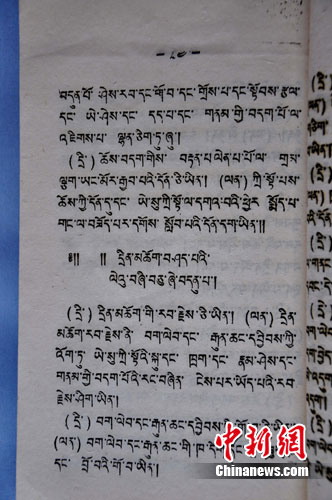 བདུན་པོ་ ཤེས་རབ་དང་གོ་བ་དང་ གྲོས་པ་དང་སྟོབས་རྩལ་
དང་ ཡེ་ཤེས་དང་ དད་པ་དང་ གནམ་གྱི་བདག་པོ་ལ་
འཇིགས་པ་ ལྷན་ཅིག་ཏུ་ཞུ།
(དྲི་) ཆོས་བདག་གིས་ བརྟན་པ་ལེན་པ་པོ་ལ་ གྲམ་
ལྕག་ཡང་མོར་རྒྱབ་པའི་དོན་ཅི་ཡིན། (ལན་) ཀྲི་སྟོ་པས་
ཆོས་ཀྱི་དོན་དུ་དང་ ཡེ་སུ་ཀྲི་སྟོ་ལ་དགའ་བའི་ཕྱིར་ སྨོད་པ་
གང་ལ་བཟོད་པར་དགོས་ སློབ་པའི་དོན་དག་ཡིན།།
༈།། །། དྲིན་མཆོག་བཤད་པའི་
ལེའུ་བཞི་བཅུ་ཞེ་བདུན་པ།
(དྲི་) དྲིན་མཆོག་གི་རབ་རྗེས་ཅི་ཡིན། (ལན་) དྲིན་
མཆོག་རབ་རྗེས་ནི་ བག་ལེབ་དང་ རྒུན་ཆང་དབྱིབས་ཀྱི་
འོག་ཏུ་ ཡེ་སུ་ཀྲི་སྟོའི་སྐུ་དང་ ཁྲག་དང་ རྣམ་ཤེས་དང་
གནམ་གྱི་བདག་པོའི་རང་བཞིན་ ངེས་པར་ཡོད་པའི་རབ་
རྗེས་ཤིག་ཡིན།
(དྲི་) བག་ལེབ་དང་རྒུན་ཆང་དབྱིབས་
(ལན་) བག་ལེབ་དང་རྒུན་ཆང་གི་ཁ་
དང་ བྲོ་བའི་གོ་བ་ཡིན།
中新网
Chinanews.com